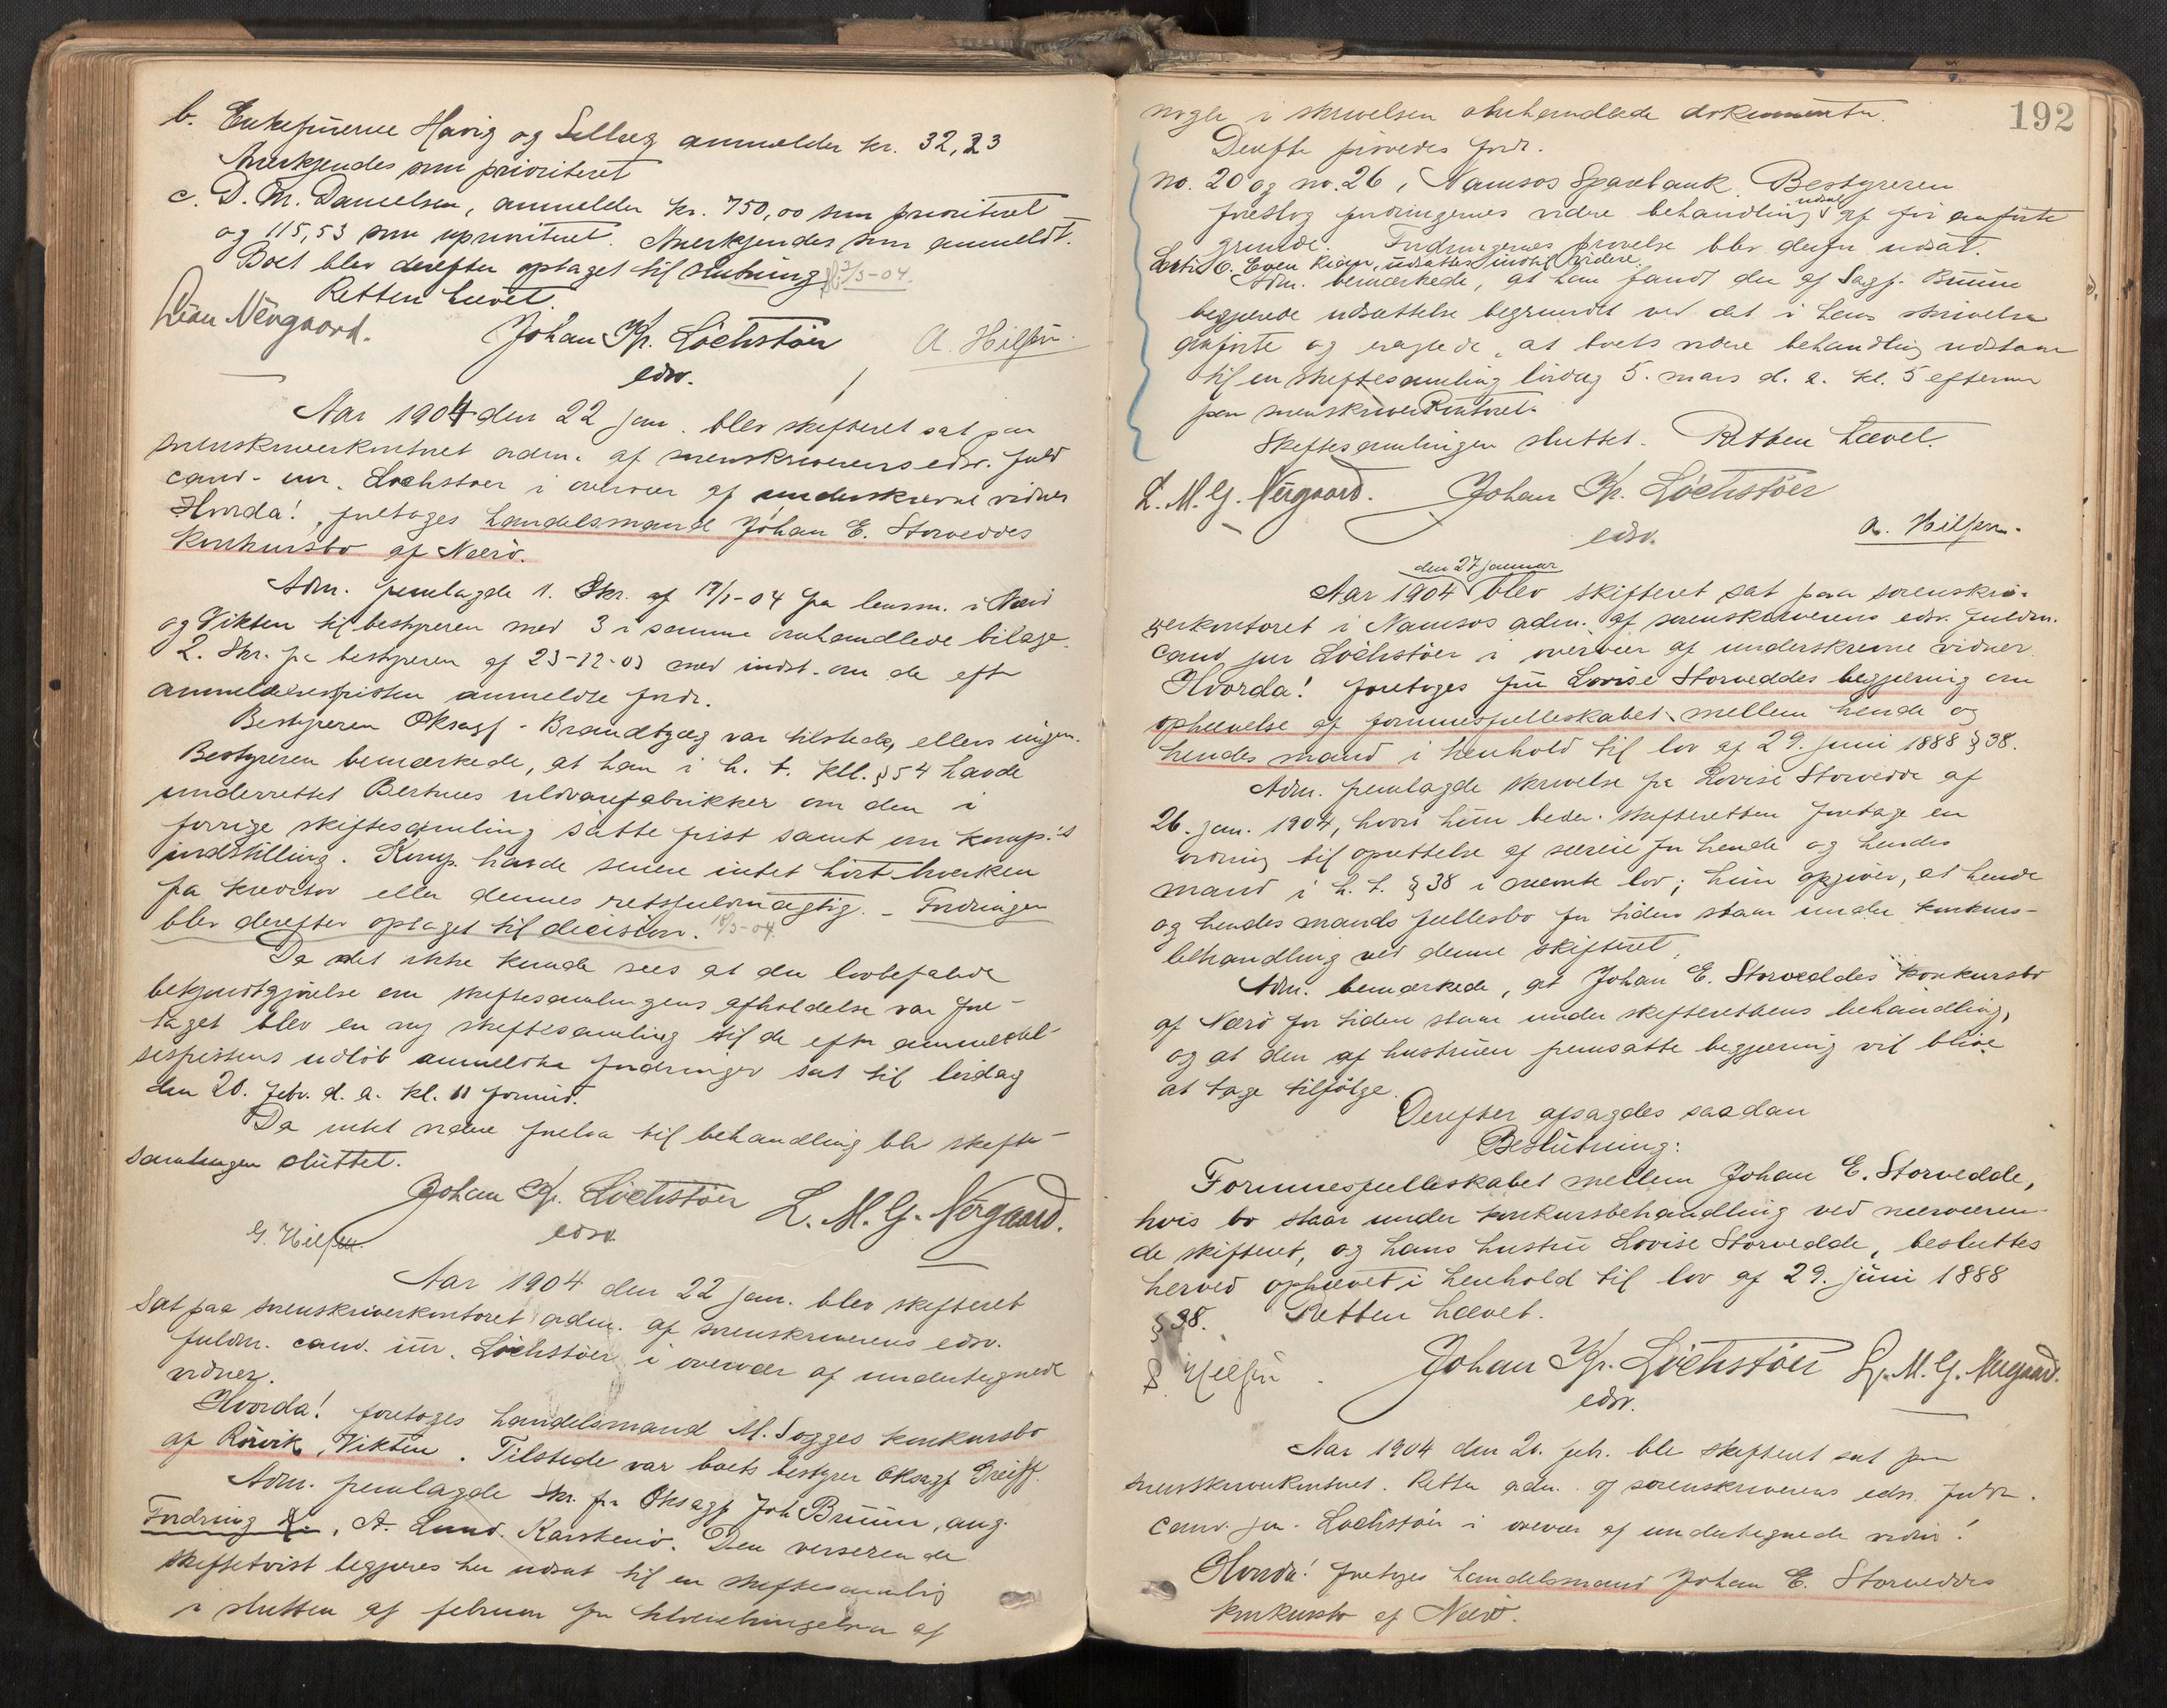 b. Enkefruerne Havig og Selberg anmelder kr. 32,23
Anerkjendes som prioriteret
c. D. M. Danielsen, anmelder kr. 750,00 som prioriteret
og 115,53 som uprioriteret. Anerkjendes som anmeldt.
Boet blev derefter optaget til slutning 7/3-04.
Retten hævet.
Lian Nergaard. Johan Kr. Lochstöer A. Hilsen
edsv.
Aar 1904 den 22 jan. blev skifteret sat paa
sorenskriverkontoret adm. af sorenskriverens edsv. fuldm
cand. jur. Lochstøer i overvær af underskrevne vidner
Hvorda! foretoges handelsmand Johan E. Storveddes
konkursbo af Nærö.
Adm. fremlagde 1. Skr. af 17/1-04 fra lensm. i Nærö
og Vikten til bestyreren med 3 i samme omhandlede bilage.
2. Skr. fra bestyreren af 23-12-03 med indst. om de efter
anmeldelsesfristen anmeldte fordr.
Bestyreren Oksagf. Brandtzæg var tilstede, ellers ingen.
Bestyreren bemærkede, at han i h. t. kll. § 54 havde
underrettet Bertnes uldvarefabrikker om den i
forrige skiftesamling satte frist samt om komp.'s
indstilling. Komp. havde senere intet hört hverken
fra kreditor eller dennes retsfuldmægtig. – Fordringen
blev derefter optaget til decision. 18/3-04.
Da det ikke kunde sees at den lovbefalede
bekjendtgjörelse om skiftesamlingens afholdelse var fore-
taget blev en ny skiftesamling til de efter anmeldel-
sesfristens udlöb anmeldte fordringer sat til lördag
den 20. febr. d. a. kl. 11 formid.
Da intet videre forelaa til behandling blev skifte-
samlingen sluttet.
Johan Kr. Lochstöer L. M. G. Nergaard.
G. Hilsen edsv.
Aar 1904 den 22 jan. blev skifteret
sat paa sorenskriverkontoret adm. af sorenskriverens edsv.
fuldm. cand. jur. Lochstöer i overvær af undertegnede
vidner.
Hvorda! foretoges handelsmand M. Sogges konkursbo
af Rörvik, Vikten. Tilstede var boets bestyrer Oksagf Greiff.
Adm. fremlagde skr. fra Oksagf Joh Bruun, ang.
Fordring, A. Lund. Karstenö. Den verserende
skiftetvist begjæres her udsat til en skiftesamling
i slutten af februar for tilveiebringelsen af
192
nogle i skrivelsen omhandlede dokumenter.
Derefter prövedes fordr.
no. 20 og no. 26, Namsos Sparebank. Bestyreren
foreslog fordringernes videre behandling udsat af for anförte
grunde. Fordringernes prövelse blev derfor udsat.
Even udsattes indtil videre.
Adm. bemærkede, at han fandt den af Sagf. Bruun
begjærede udsættelse begrundet ved det i hans skrivelse
anförte og eragtede, at boets videre behandling udstaar
til en skiftesamling lördag 5. mars d. a. kl. 5 efterm
paa sorenskriverkontoret.
Skiftesamlingen sluttet. Retten hævet.
L. M. G. Nergaard. Johan Kr. Lochstöer
edsv. A. Hilsen.
den 27 januar
Aar 1904 blev skifteret sat paa sorenskri-
verkontoret i Namsos adm. af sorenskriverens edsv. fuldm.
cand jur Lochstöer i overvær af underskrevne vidner
Hvorda! foretoges fru Lovise Storveddes begjæring om
ophævelse af formuesfælleskabet mellem hende og
hendes mand i henhold til lov af 29. juni 1888 § 38.
Adm. fremlagde skrivelse fra Lovise Storvedde af
26. jan. 1904, hvori hun beder skifteretten foretage en
ordning til oprettelse af særeie for hende og hendes
mand i h. t. § 38 i nævnte lov; hun opgiver, at hende
og hendes mands fællesbo for tiden staar under konkurs-
behandling ved denne skifteret.
Adm. bemærkede, at Johan E. Storveddes konkursbo
af Nærö for tiden staar under skifterettens behandling,
og at den af hustruen fremsatte begjæring vil blive
at tage tilfölge.
Derefter afsagdes saadan
Beslutning:
Formuesfælleskabet mellem Johan E. Storvedde,
hvis bo staar under konkursbehandling ved nærværen-
de skifteret, og hans hustru Lovise Storvedde, besluttes
herved ophævet i henhold til lov af 29. juni 1888
§ 38. Retten hævet.
Hilsen Johan Kr. Lochstöer L. M. G. Nergaard.
edsv.
Aar 1904 den 20. feb. blev skifteret sat paa
sorenskriverkontoret. Retten adm. af sorenskriverens edsv. fuldm.
cand. jur. Lochstöer i overvær af undertegnede vidner!
Hvorda! foretoges handelsmand Johan E. Storveddes
konkursbo af Nærö.